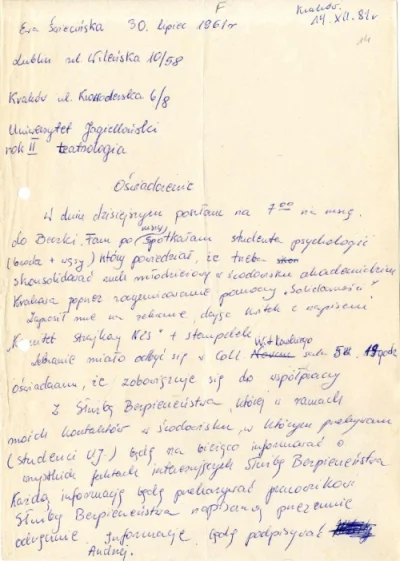 F
Kraków.
14. XII. 81r
Ewa 30. lipiec 1961r
14
Lublin ul. Wileńska 10/58
Kraków ul. 6/8
Uniwersytet Jagielloński
rok II teatrologia
Oświadczenie
W dniu dzisiejszym poszłam na 7⁰⁰ na mszę
mszy
do Beczki. Tam po spotkałam studenta psychologii
(broda + wąsy) który powiedział, że trzeba
skonsolidować ruch młodzieżowy w środowisku akademickim
Krakowa poprzez pomocy „Solidarności”
Zaprosił mnie na zebranie, dając kartek z napisem
„Komitet Strajkowy NZS” + stempelek
Witkowskiego
Zebranie miało odbyć się w Coll. sala 56, 19 godz
Oświadczam, że zobowiązuję się do współpracy
Z Służbą Bezpieczeństwa, której w ramach
moich kontaktów w środowisku, w którym przebywam
(studenci UJ) będę na bieżąco informować o
wszystkich faktach interesujących Służbę Bezpieczeństwa
Każdą informację będę przekazywać pracownikowi
Służby Bezpieczeństwa napisaną
odręcznie. Informacje będę podpisywać
Andrzej.